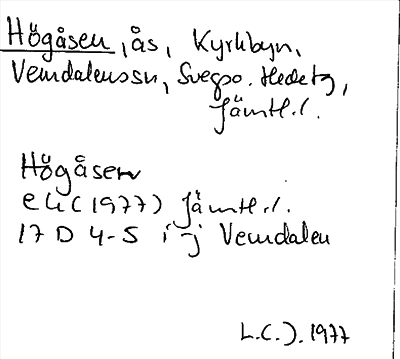 Högåsen, ås, Kyrkbyn,
Vemdalens sn, Svegs o. Hede tg,
Jämtl.l.
Högåsen
ek (1977) Jämtl.l.
17 D 4-5 i-j Vemdalen
L.C.J. 1977